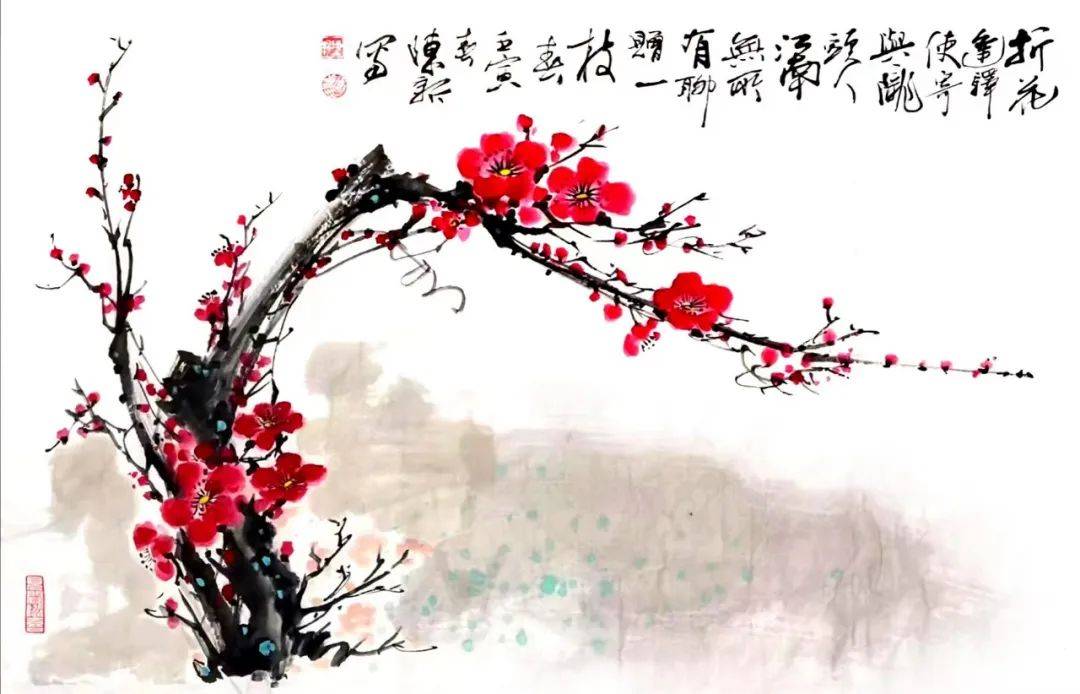 折花
逢驛
使寄
與隴
頭人
江南
無所
有聊
贈一
枝
春
壬寅
春
陳
写